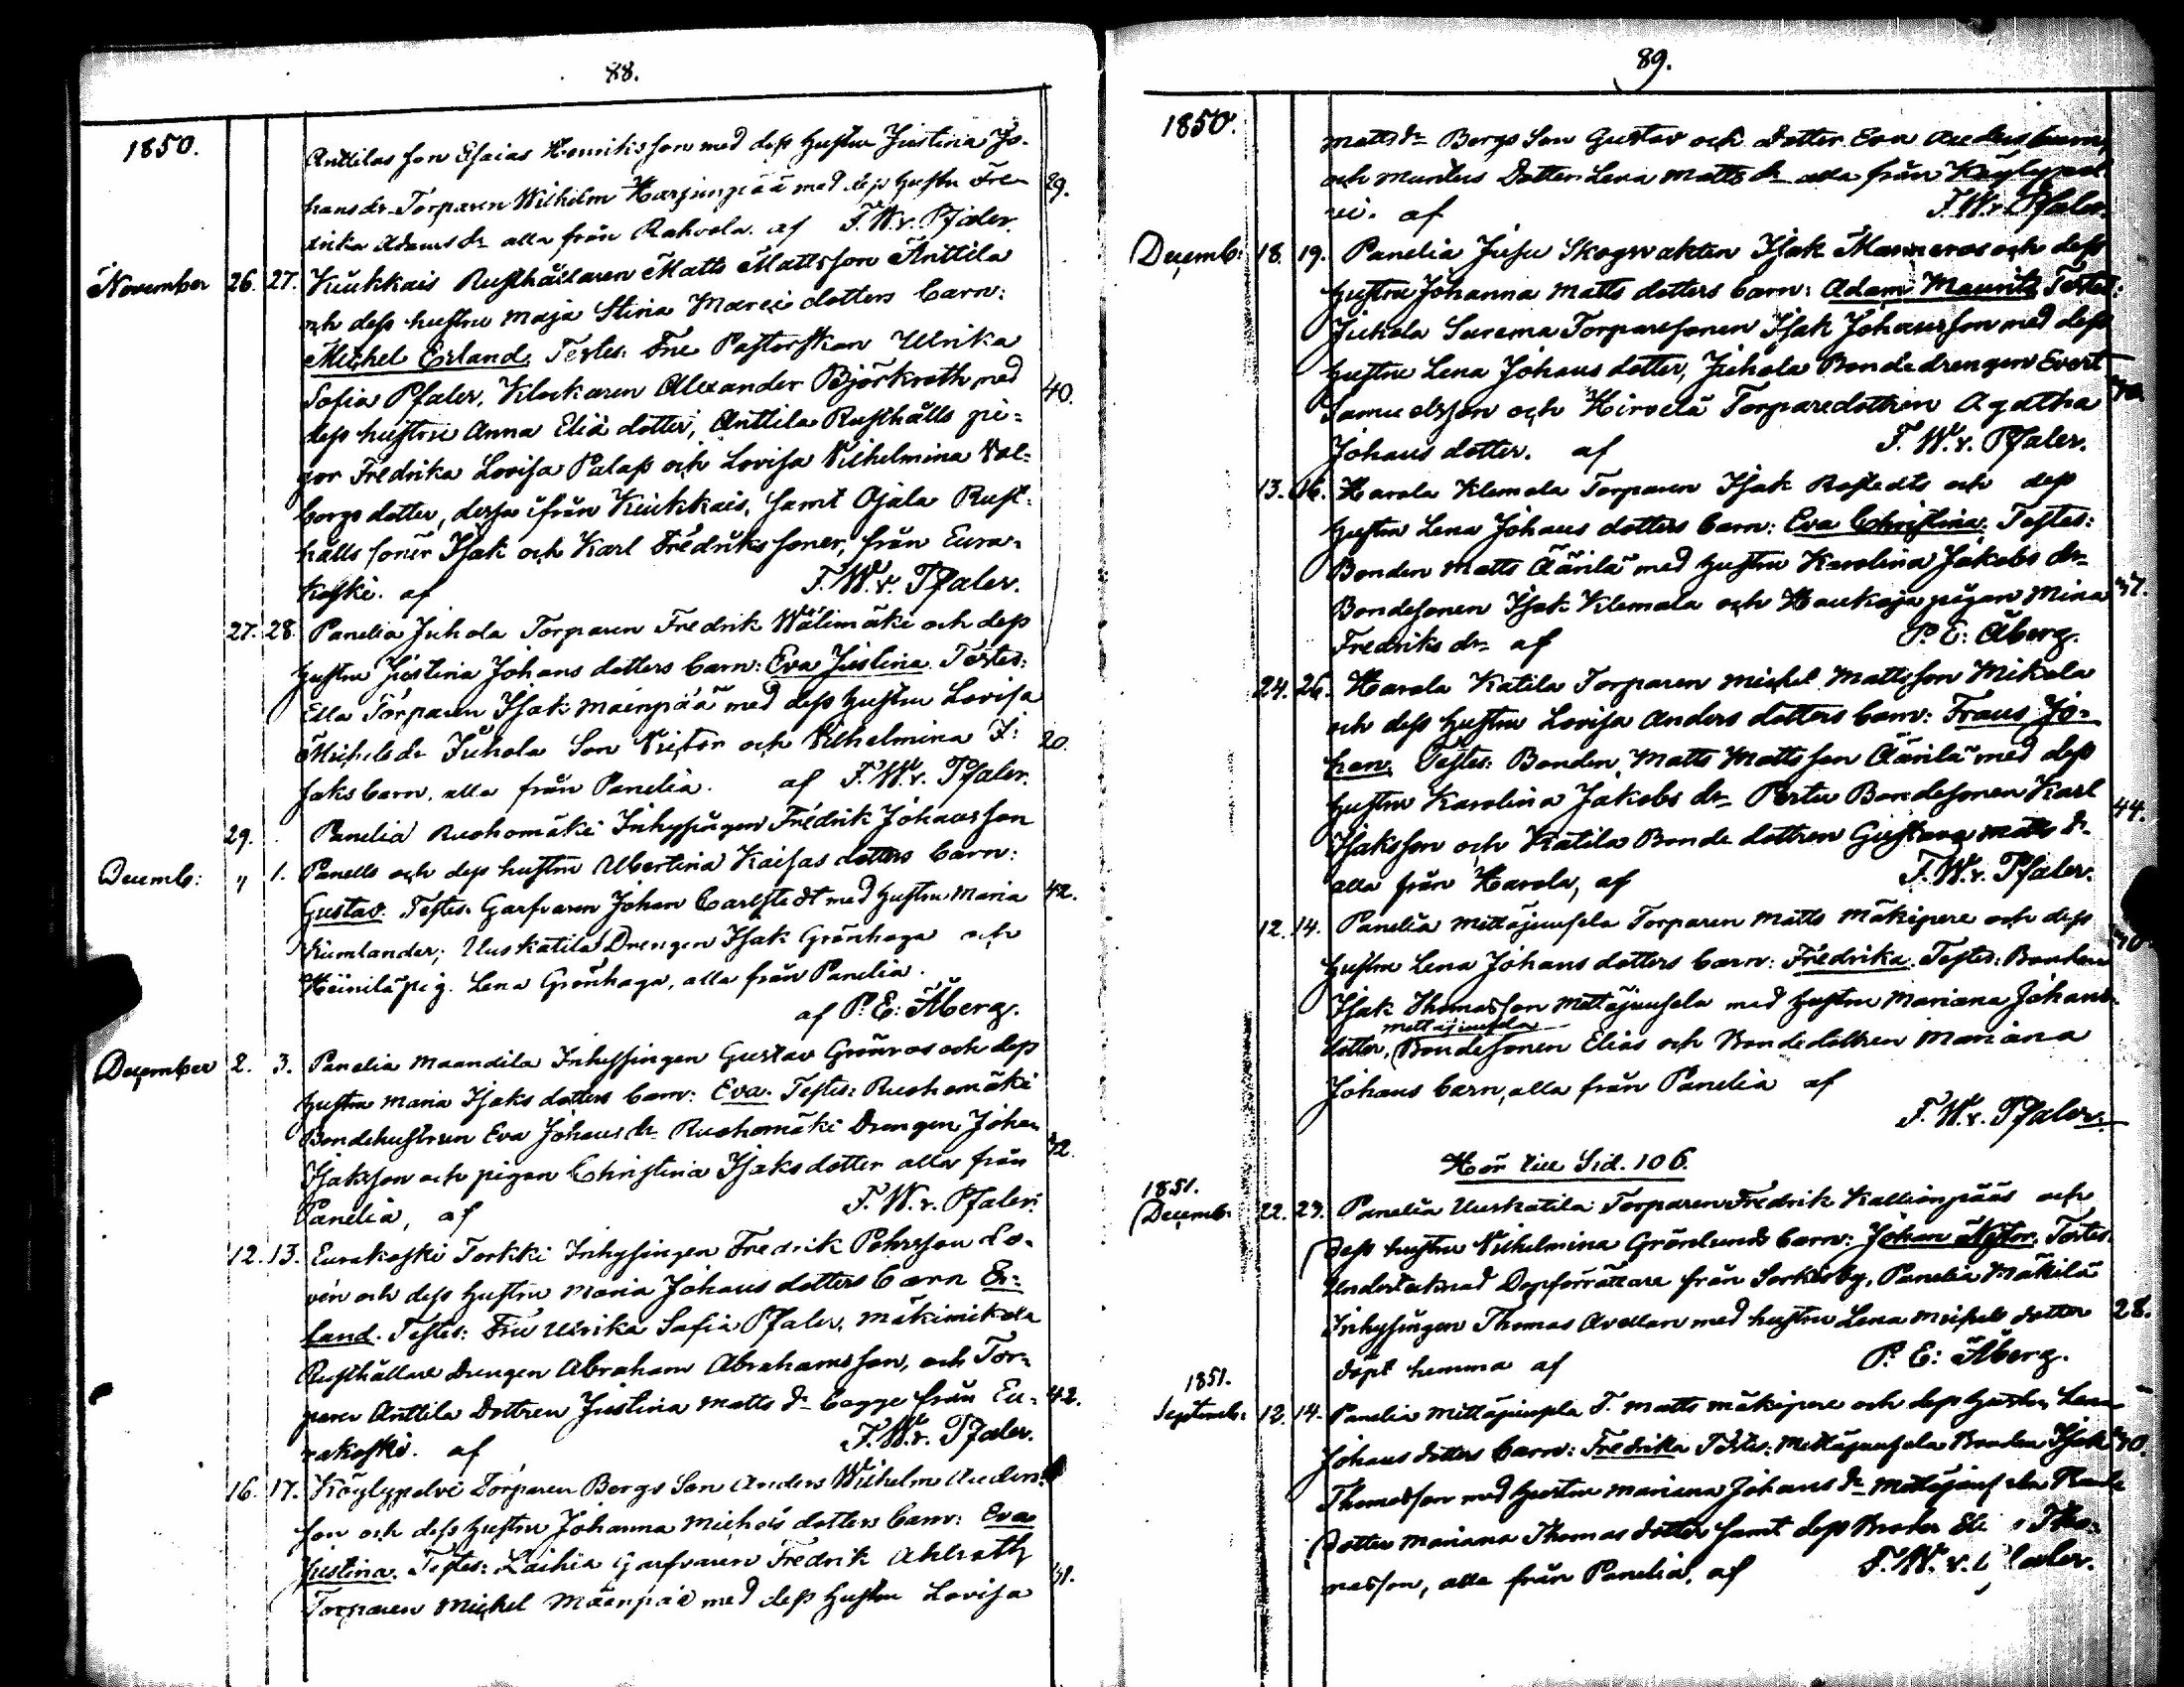 88.
1850.
Anttilas son Esaias Henriksson med dess hustru Justina Jo-
hansdr Torparen Wilhelm Harjunpää med dess hustru Fre- 29.
drika Adamsdr alla från Rahvola. af F. W. v. Pfaler.
November 26. 27. Kiukkais Rusthållaren Matts Mattsson Anttila
och dess hustru Maja Stina Marci dotters barn:
Michel Erland. Testes: Fru Pastorskan Ulrika
Sofia Pfaler, Klockaren Alexander Björkroth med 40.
dess hustru Anna Eliä dotter, Anttila Rusthålls pi-
gor Fredrika Lovisa Palass och Lovisa Vilhelmina Val-
borgs dotter, dessa ifrån Kiukkais, samt Ojala Rust-
hålls söner Isak och Karl Fredriks söner, från Eura-
koski. af F. W. v. Pfaler.
27. 28. Panelia Juhola Torparen Fredrik Wälimäki och dess
hustru Justina Johans dotters barn: Eva Justina. Testes:
Ella Torparen Isak Mäenpää med dess hustru Lovisa
Michelsdr Juhola Son Victor och Vilhelmina I- 20.
saks barn, alla från Panelia. af F. W. v. Pfaler.
29. Panelia Ruohomäki Inhysingen Fredrik Johansson
Decemb: " 1. Panells och dess hustru Ubertina Kaisas dotters barn:
Gustav. Testes: Garfvaren Johan Carlstedt med hustru Maria 42.
Kumlander, Uuskatila Drengen Isak Grönhaga och
Heinilä pig. Lena Grönhaga, alla från Panelia.
af P. E: Åberg.
December 2. 3. Panelia Maandila Inhysingen Gustav Grönros och dess
hustru Maria Isaks dotters barn: Eva. Testes: Ruohomäki
Bondehustrun Eva Johansdr Ruohomäki Drengen Johan
Isaksson och pigan Christina Isaks dotter alla från 32.
Panelia, af F. W. v. Pfaler.
12. 13. Eurakoski Torkki Inhysingen Fredrik Pehrsson Lo-
vén och dess hustru Maria Johans dotters barn Er-
land. Testes: Fru Ulrika Sofia Pfaler, Mäkimikola
Rusthållare Drengen Abraham Abrahamsson, och Tor-
paren Anttila Dottren Justina Matts dr Bagge från Eu- 42.
rakoski. af F. W. v. Pfaler.
16. 17. Köylypolvi Torparen Bergs Son Anders Wilhelm Anders-
son och dess hustru Johanna Michels dotters barn: Eva
Justina. Testes: Laihia Garfvaren Fredrik Ahlroth
Torparen Michel Mäenpää med dess hustru Lovisa 31.
89.
1850.
Mattsdr Bergs Son Gustav och Dotter Eva Anders barn,
och Dotter Lena Matts dr alla från Köylypol
vi. af F. W. v. Pfaler.
Decemb: 18. 19. Panelia Jusu Skogsvakten Isak Manneros och dess
hustru Johanna Matts dotters barn: Adam Maurits Testes:
Juhola Surema Torparesonen Isak Johansson med dess
hustru Lena Johans dotter, Juhola Bondedrengen Evert
Samuelsson och Hirvelä Torparedottren Agatha
Johans dotter. af F. W. v. Pfaler.
13. 16. Harola Klemola Torparen Isak Rostedt och dess
hustru Lena Johans dotters barn: Eva Christina. Testes:
Bonden Matts Äärilä med hustru Karolina Jakobs dr
Bondesonen Isak Klemola och Haukoja pigan Mina 37.
Fredriks dr af P. E: Åberg.
24. 26. Harola Katila Torparen Michel Mattsson Mikola
och dess hustru Lovisa Anders dotters barn: Frans Jo-
han. Testes: Bonden Matts Mattsson Äärilä med dess
hustru Karolina Jakobs dr Perttu Bondesonen Karl
Isaksson och Katila Bondedottren Gustava Matts dr 44.
alla från Harola, af F. W. v. Pfaler.
12. 14. Panelia Mettäjuusela Torparen Matts Mäkipere och dess
hustru Lena Johans dotters barn: Fredrika. Testes: Bonden
Isak Thomasson Mettäjuusela med hustru Mariana Johans
Mettäjuusela
dotter, Bondesonen Elias och Bondedottren Mariana
Johans barn, alla från Panelia af
F. W. v. Pfaler.
Hör till Sid. 106.
1851.
Decemb. 22. 23. Panelia Uuskatila Torparen Fredrik Kallionpääs och
dess hustru Vilhelmina Grönlunds barn: Johan Nestor. Testes:
Undertecknad Dopförrättare från Sorkisby, Panelia Mäkilä
Inhysingen Thomas Avellan med hustru Lena Michels dotter 28.
döpt hemma af P. E: Åberg.
1851.
Septemb: 12. 14. Panelia Mettäjuusela T. Matts Mäkipere och dess hustru Lena
Johans dotters barn: Fredrika Testes: Mettäjuusela Bonden Isak 30.
Thomasson med hustru Mariana Johans dr Mettäjuusela
dotter Mariana Thomas dotter samt dess Broder Eli Tho-
masson, alla från Panelia. af F. W. v. Pfaler.